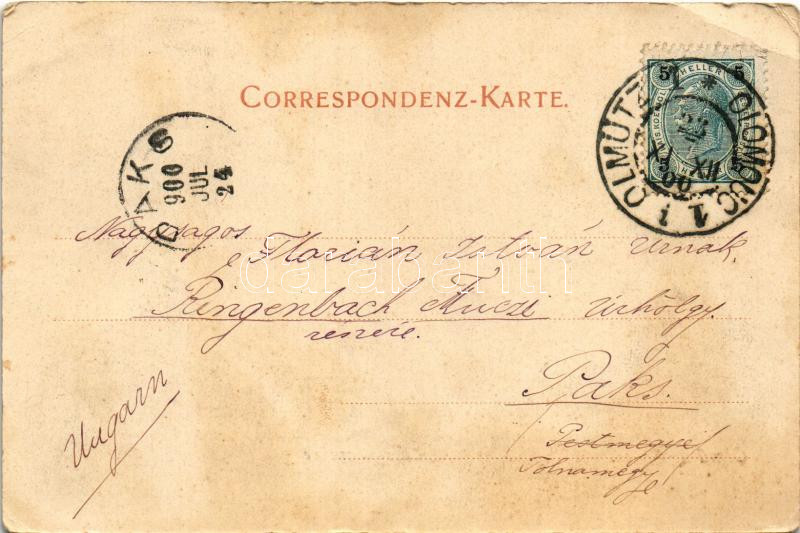 CORRESPONDENZ-KARTE.
5 HELLER 5
OLMÜTZ 1 * OLOMOUC 1
PAKS
900
JUL
24
Nagyságos
Florián István úrnak,
Ringenbach Muczi úrhölgy
részére.
Paks.
Pestmegye
Tolnamegye
Ungarn
darabanth